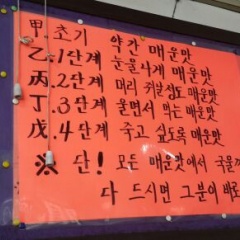 甲.초기 약간 매운맛
乙.1단계 눈물나게 매운맛
丙.2단계 머리 쥐날정도 매운맛
丁.3단계 울면서 먹는 매운맛
戊.4단계 죽고 싶도록 매운맛
※ 단! 모든 매운맛에서 국물까
다 드시면 그분이 바로